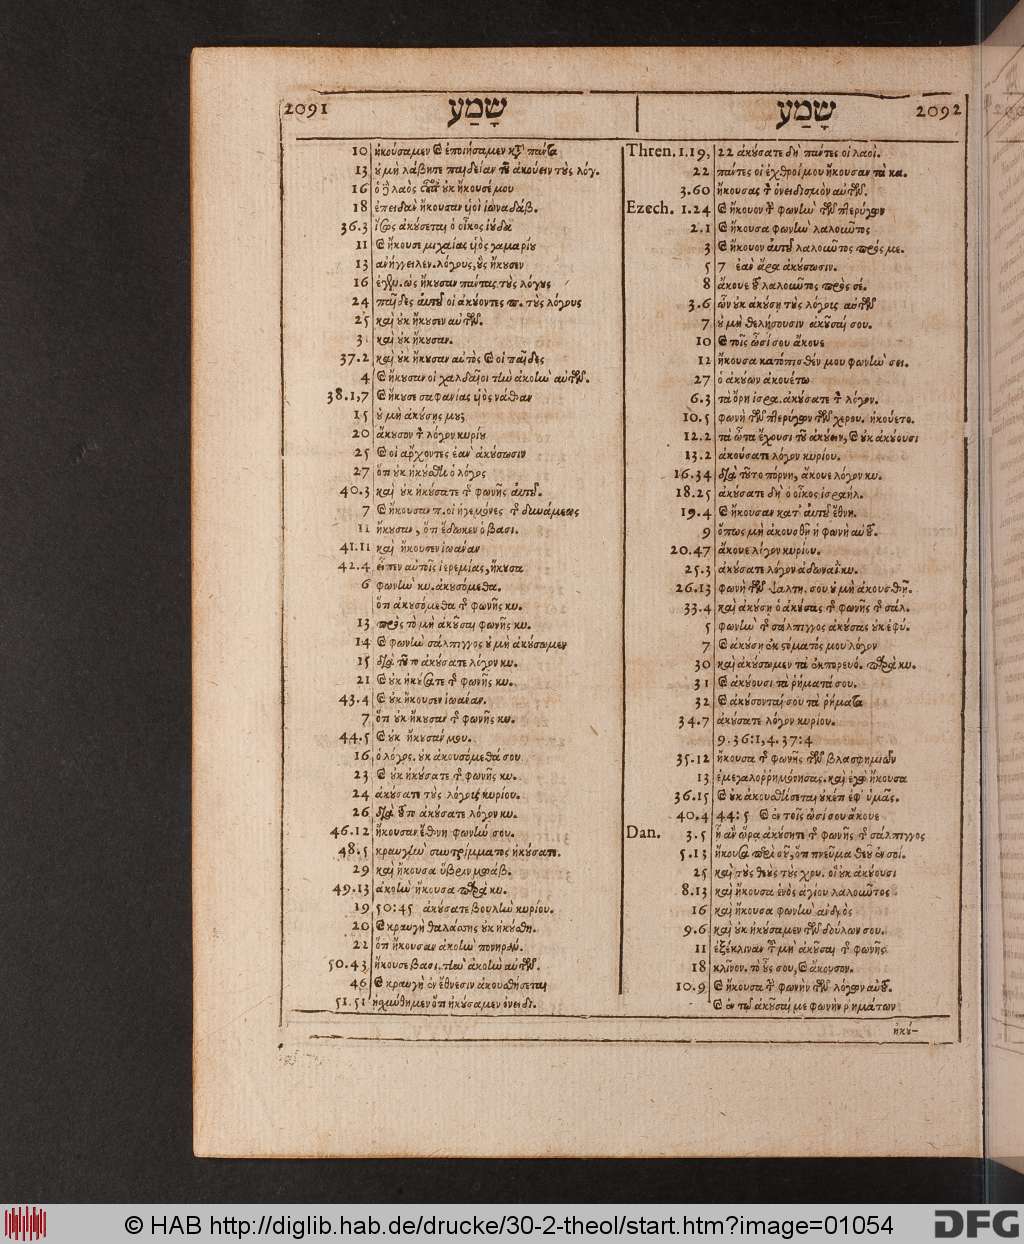 2091 שָׁמַע
10 ἠκούσαμεν καὶ ἐποιήσαμεν κτ πάντα
13 οὐ μὴ λάβητε παιδείαν τοῦ ἀκούειν τοὺς λόγ.
16 ὁ λαὸς οὐκ ἤκουσέ μου
18 ἐπειδὰν ἤκουσαν υἱοὶ ἰωναδάβ.
36.3 ἴσως ἀκούσεται ὁ οἶκος ἰούδα
11 καὶ ἤκουσε μιχαίας υἱὸς γαμαρίου
13 ἀνήγγειλεν. λόγους, οὓς ἤκουσεν
16 ἐγένε. ὡς ἤκουσαν πάντας τοὺς λόγους
24 παῖδες αὐτοῦ οἱ ἀκούοντες π. τοὺς λόγους
25 καὶ οὐκ ἤκουσεν αὐτῶν.
3 καὶ οὐκ ἤκουσαν.
37.2 καὶ οὐκ ἤκουσαν αὐτὸς καὶ οἱ παῖδες
4 καὶ ἤκουσαν οἱ χαλδαῖοι τὴν ἀκοὴν αὐτῶν.
38.1,7 καὶ ἤκουσε σαφανίας υἱὸς νάθαν
15 οὐ μὴ ἀκούσῃς μου
20 ἄκουσον τὸν λόγον κυρίου
25 καὶ οἱ ἄρχοντες ἐὰν ἀκούσωσιν
27 ὅτι οὐκ ἠκούσθη ὁ λόγος
40.3 καὶ οὐκ ἠκούσατε τῆς φωνῆς αὐτοῦ.
7 καὶ ἤκουσαν π. οἱ ἡγεμόνες τῆς δυνάμεως
11 ἤκουσαν, ὅτι ἔδωκεν ὁ βασι.
41.11 καὶ ἤκουσεν ἰωανάν
42.4 εἶπεν αὐτοῖς ἱερεμίας, ἤκουσα
6 φωνὴν κυ. ἀκουσόμεθα.
ὅτι ἀκουσόμεθα τῆς φωνῆς κυ.
13 πρὸς τὸ μὴ ἀκοῦσαι φωνῆς κυ.
14 καὶ φωνὴν σάλπιγγος οὐ μὴ ἀκούσωμεν
15 διὰ τοῦτο ἀκούσατε λόγον κυ.
21 καὶ οὐκ ἠκούσατε τῆς φωνῆς κυ.
43.4 καὶ οὐκ ἤκουσεν ἰωανάν.
7 ὅτι οὐκ ἤκουσαν τῆς φωνῆς κυ.
44.5 καὶ οὐκ ἤκουσάν μου.
16 ὁ λόγος. οὐκ ἀκουσόμεθά σου
23 καὶ οὐκ ἠκούσατε τῆς φωνῆς κυ.
24 ἀκούσατε τοὺς λόγους κυρίου.
26 διὰ τοῦτο ἀκούσατε λόγον κυ.
46.12 ἤκουσαν ἔθνη φωνήν σου.
48.5 κραυγὴν συντρίμματος ἠκούσατε.
29 καὶ ἤκουσα ὕβριν μωάβ.
49.13 ἀκοὴν ἤκουσα παρὰ κυ.
19 50:45 ἀκούσατε βουλὴν κυρίου.
20 καὶ κραυγὴ θαλάσσης οὐκ ἠκούσθη.
22 ὅτι ἤκουσαν ἀκοὴν πονηράν.
50.43 ἤκουσε βασι. τὴν ἀκοὴν αὐτῶν.
46 καὶ κραυγὴ ἐν ἔθνεσιν ἀκουσθήσεται
51.51 ᾐσχύνθημεν ὅτι ἠκούσαμεν ὀνειδι.
שָׁמַע 2092
Thren. 1.19, 22 ἀκούσατε δὴ πάντες οἱ λαοί.
22 πάντες οἱ ἐχθροί μου ἤκουσαν τὰ κα.
3.60 ἤκουσας τὸν ὀνειδισμὸν αὐτῶν.
Ezech. 1.24 καὶ ἤκουον τὴν φωνὴν τῶν πτερύγων
2.1 καὶ ἤκουσα φωνὴν λαλοῦντος
3 καὶ ἤκουον αὐτοῦ λαλοῦντος πρός με.
5 7 ἐὰν ἄρα ἀκούσωσιν.
8 ἄκουε τοῦ λαλοῦντος πρὸς σέ.
3.6 ὧν οὐκ ἀκούσῃ τοὺς λόγους αὐτῶν
7 οὐ μὴ θελήσουσιν ἀκοῦσαί σου.
10 καὶ τοῖς ὠσί σου ἄκουε
12 ἤκουσα κατόπισθέν μου φωνὴν σει.
27 ὁ ἀκούων ἀκουέτω
6.3 τὰ ὄρη ἰσρα. ἀκούσατε τὸν λόγον.
10.5 φωνὴ τῶν πτερύγων τῶν χερου. ἠκούετο.
12.2 τὰ ὦτα ἔχουσι τοῦ ἀκούειν, καὶ οὐκ ἀκούουσι
13.2 ἀκούσατε λόγον κυρίου.
16.34 διὰ τοῦτο πόρνη, ἄκουε λόγον κυ.
18.25 ἀκούσατε δὴ ὁ οἶκος ἰσραήλ.
19.4 καὶ ἤκουσαν κατ αὐτοῦ ἔθνη.
9 ὅπως μὴ ἀκουσθῇ ἡ φωνὴ αὐτοῦ.
20.47 ἄκουε λόγον κυρίου.
25.3 ἀκούσατε λόγον ἀδωναῒ κυ.
26.13 φωνὴ τῶν ψαλτη. σου οὐ μὴ ἀκουσθῇ.
33.4 καὶ ἀκούσῃ ὁ ἀκούσας τῆς φωνῆς τῆς σάλ.
5 φωνὴν τῆς σάλπιγγος ἀκούσας οὐκ ἐφύ.
7 καὶ ἀκούσῃ ἐκ στόματός μου λόγον
30 καὶ ἀκούσωμεν τὰ ἐκπορευό. παρὰ κυ.
31 καὶ ἀκούουσι τὰ ῥήματά σου.
32 καὶ ἀκούσονταί σου τὰ ῥήματα
34.7 ἀκούσατε λόγον κυρίου.
9. 36:1,4. 37:4
35.12 ἤκουσα τῆς φωνῆς τῶν βλασφημιῶν
13 ἐμεγαλορρημόνησας. καὶ ἐγὼ ἤκουσα
36.15 καὶ οὐκ ἀκουσθήσεται οὐκέτι ἐφ' ὑμᾶς.
40.4 44:5 καὶ ἐν τοῖς ὠσί σου ἄκουε
Dan. 3.5 ᾗ ἂν ὥρᾳ ἀκούσητε τῆς φωνῆς τῆς σάλπιγγος
5.13 ἤκουσα περὶ σοῦ, ὅτι πνεῦμα θεοῦ ἐν σοί.
25 καὶ τοὺς θεοὺς τοὺς χρυ. οἳ οὐκ ἀκούουσι
8.13 καὶ ἤκουσα ἑνὸς ἁγίου λαλοῦντος
16 καὶ ἤκουσα φωνὴν ἀνδρὸς
9.6 καὶ οὐκ ἠκούσαμεν τῶν δούλων σου.
11 ἐξέκλιναν τοῦ μὴ ἀκοῦσαι τῆς φωνῆς
18 κλῖνον. τὸ οὖς σου, καὶ ἄκουσον.
10.9 καὶ ἤκουσα τὴν φωνὴν τῶν λόγων αὐτοῦ.
καὶ ἐν τῷ ἀκοῦσαί με φωνὴν ῥημάτων
ἠκού-
© HAB http://diglib.hab.de/drucke/30-2-theol/start.htm?image=01054
DFG